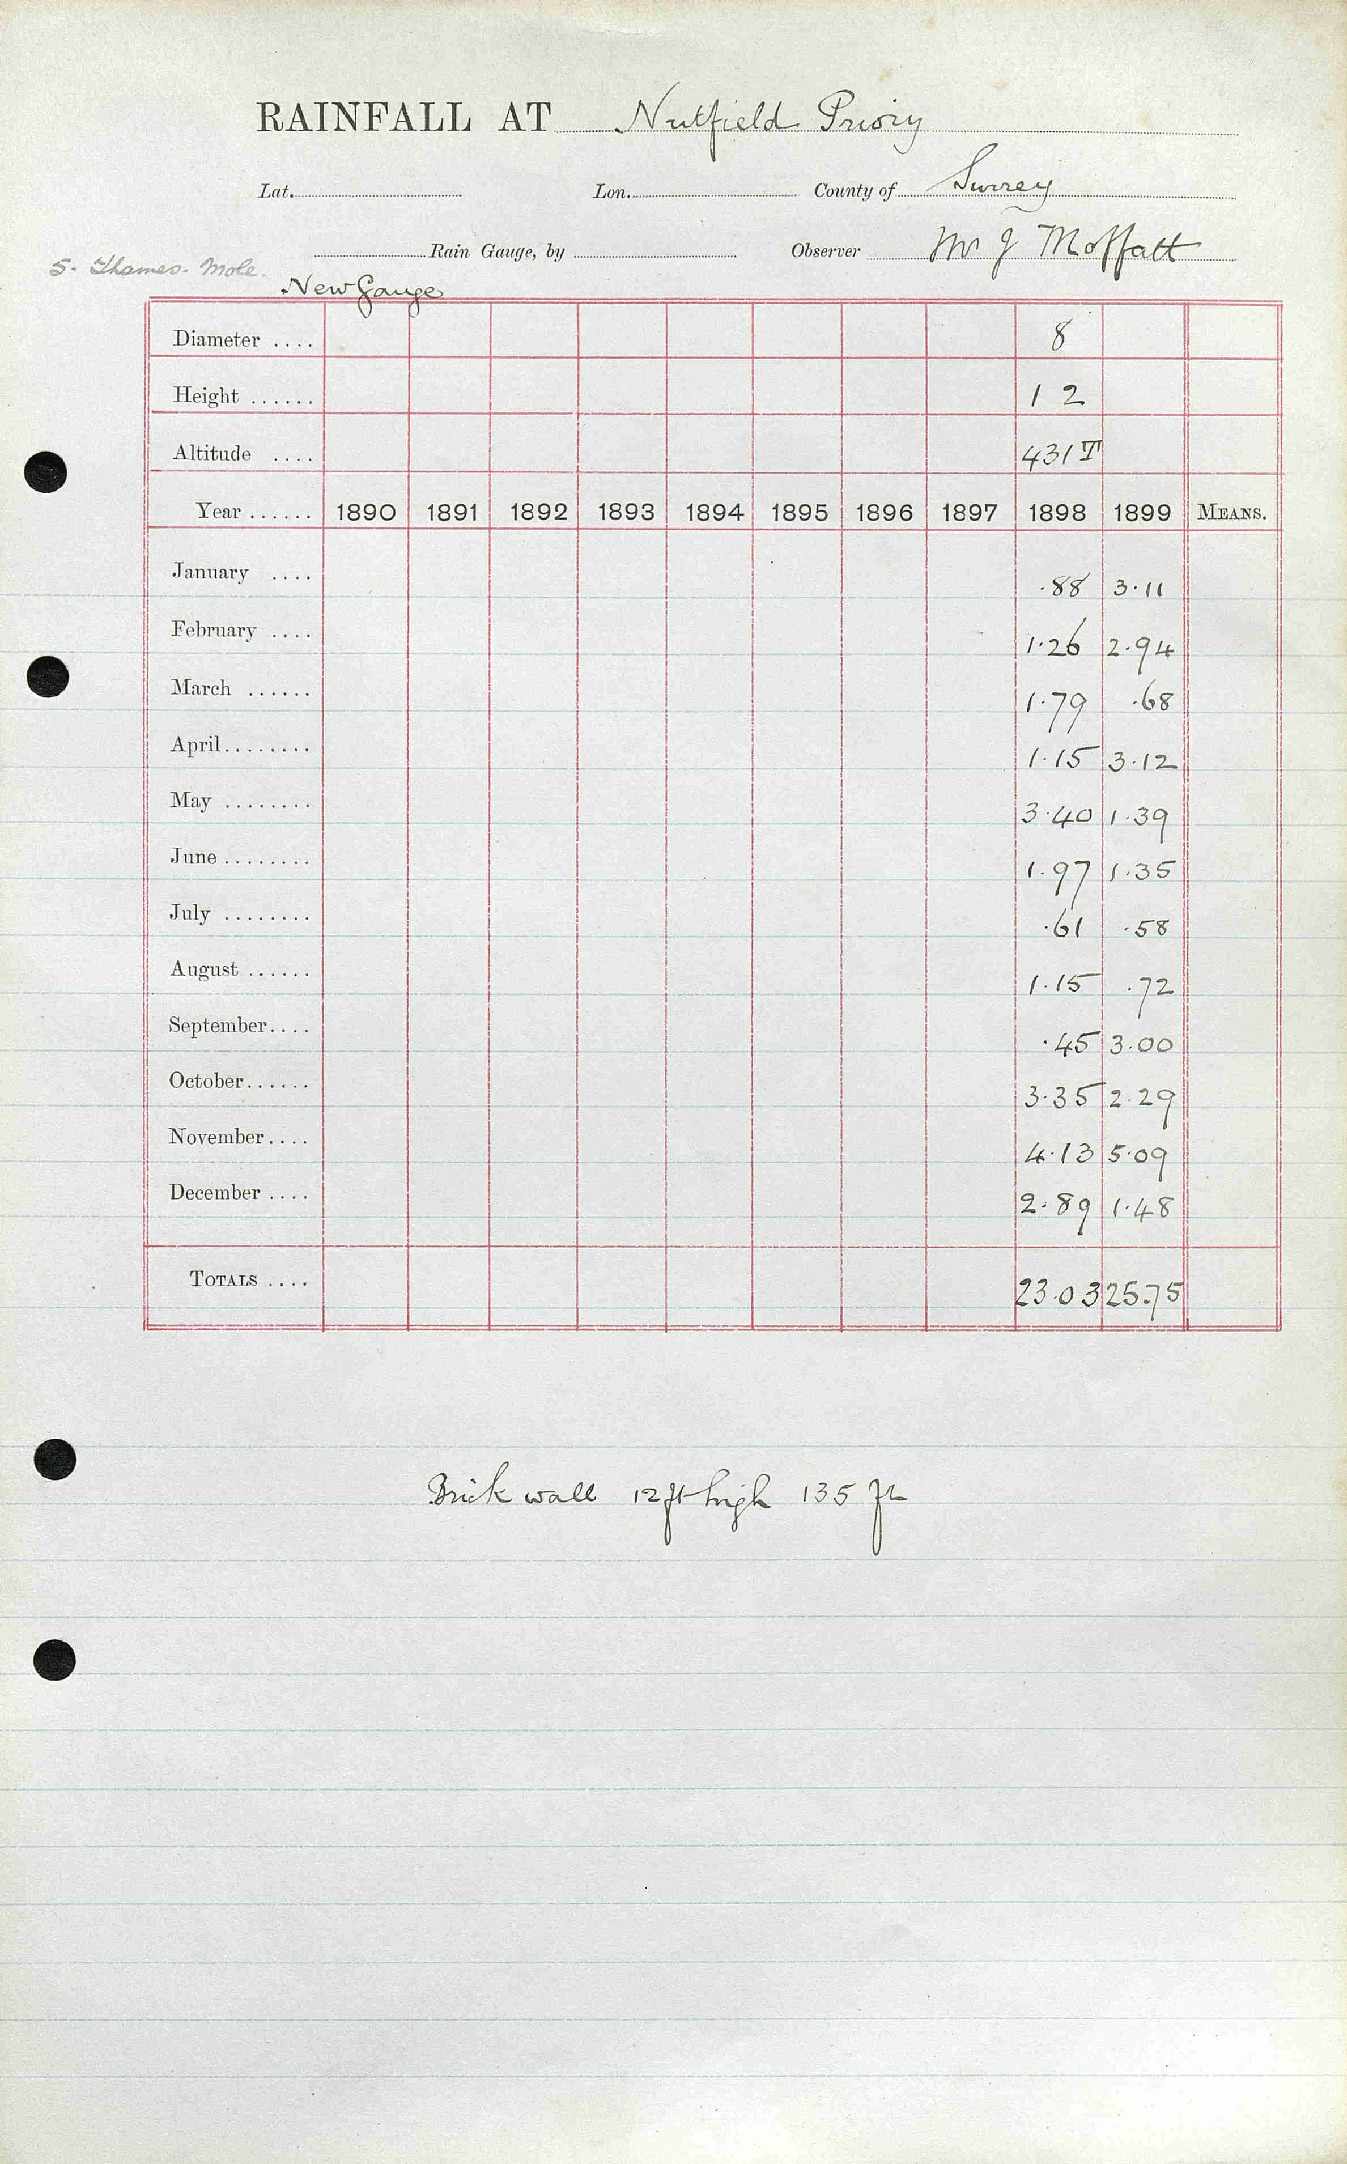 RAINFALL AT Nutfield Priory
Lat. Lon. County of Surrey
Rain Gauge, by Observer Mr J Moffatt
5. Thames. Mole.
New Gauge
Diameter .... 8
Height ...... 1 2
Altitude .... 431 T
Year ...... 1890 1891 1892 1893 1894 1895 1896 1897 1898 1899 MEANS.
January .... .88 3.11
February .... 1.26 2.94
March ...... 1.79 .68
April........ 1.15 3.12
May ........ 3.40 1.39
June ........ 1.97 1.35
July ........ .61 .58
August ...... 1.15 .72
September.... .45 3.00
October...... 3.35 2.29
November.... 4.13 5.09
December .... 2.89 1.48
TOTALS .... 23.03 25.75
Brick wall 12 ft high 135 ft